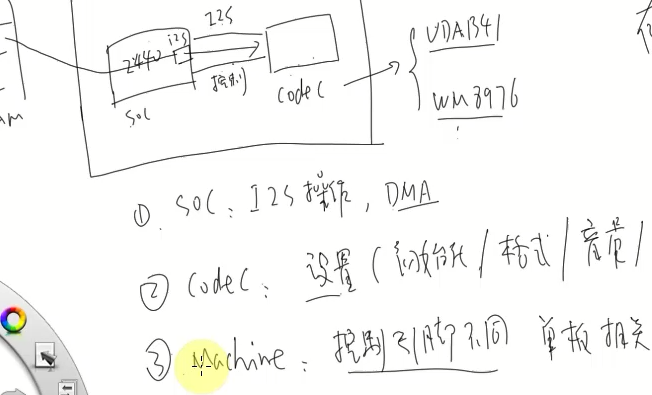 I2S
i2S
2440
SOC
控制
codec
UDA1341
WM8976
① SOC: I2S操作, DMA
② codec: 设置(初始化/格式/音质/
③ Machine: 控制引脚不同 单板相关